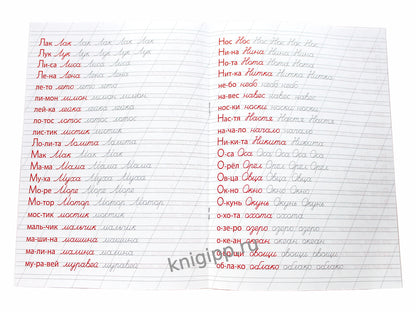 Лак Лак Лак Лак Лак Лак
Лук Лук Лук Лук Лук Лук
Ли-са Лиса Лиса Лиса Лиса
Ле-на Лена Лена Лена Лена
ле-то лето лето лето лето
ли-мон лимон лимон лимон
лей-ка лейка лейка лейка
ло-тос лотос лотос лотос
лис-тик листик листик
Ло-ли-та Лолита Лолита
Мак Мак Мак Мак Мак
Ма-ма Мама Мама Мама
Му-ха Муха Муха Муха
Мо-ре Море Море Море
Мо-тор Мотор Мотор Мотор
мос-тик мостик мостик
маль-чик мальчик мальчик
ма-ши-на машина машина
ма-ли-на малина малина
му-ра-вей муравей муравей
Нос Нос Нос Нос Нос Нос
Ни-на Нина Нина Нина Нина
Но-та Нота Нота Нота Нота
Нит-ка Нитка Нитка Нитка
не-бо небо небо небо
на-вес навес навес навес
нос-ки носки носки носки
Нас-тя Настя Настя Настя
на-ча-ло начало начало
Ни-ки-та Никита Никита
О-са Оса Оса Оса Оса Оса
О-рёл Орёл Орёл Орёл Орёл
Ов-ца Овца Овца Овца Овца
Ок-но Окно Окно Окно Окно
О-кунь Окунь Окунь Окунь
о-хо-та охота охота охота
о-зе-ро озеро озеро озеро
о-ке-ан океан океан океан
овощи овощи овощи
об-ла-ко облако облако облако
knigipp.ru